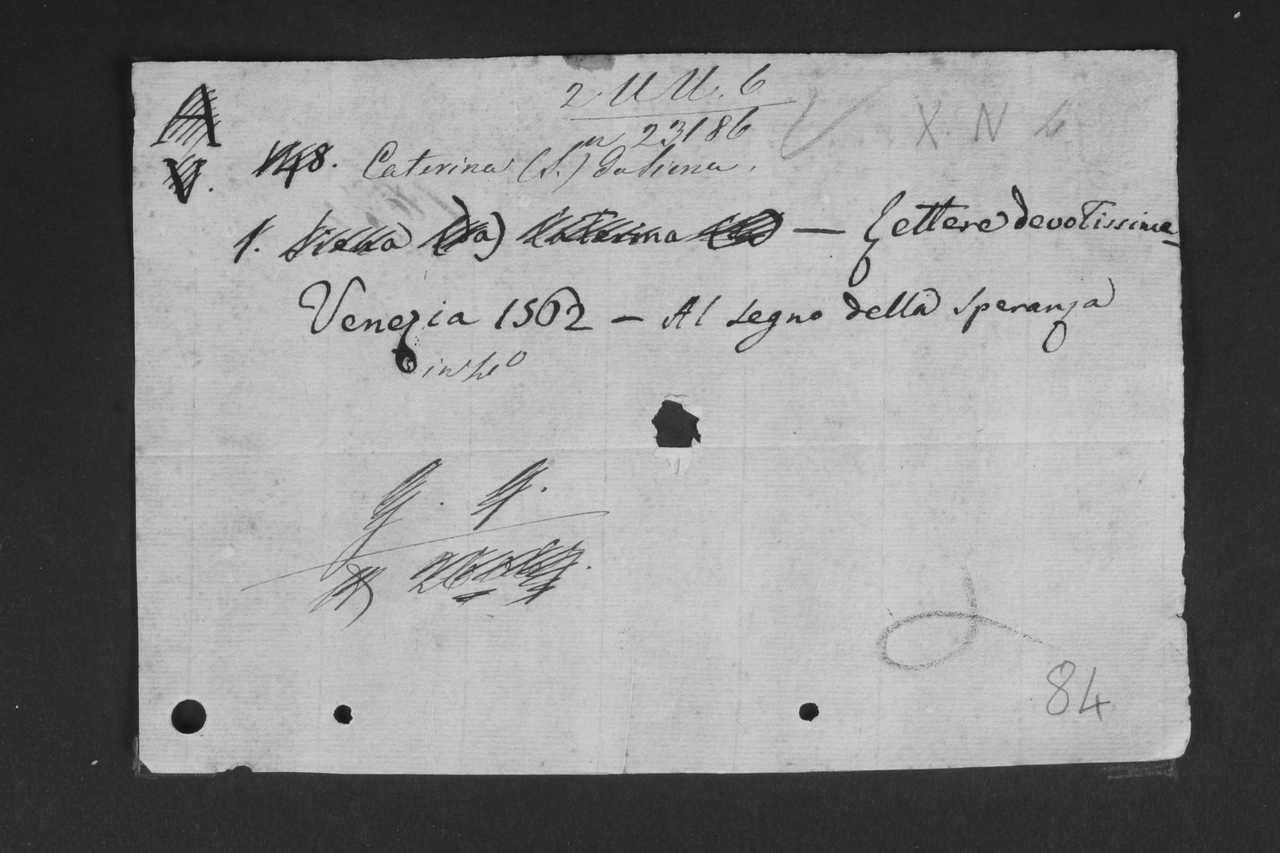 A
V.
2. U U. 6
n 23186
X. N 6
148. Caterina (S.) da Siena.
1. Siena (da) Caterina — Lettere devotissime
Venezia 1562 — Al segno della Speranza
in 4º
G. G.
84